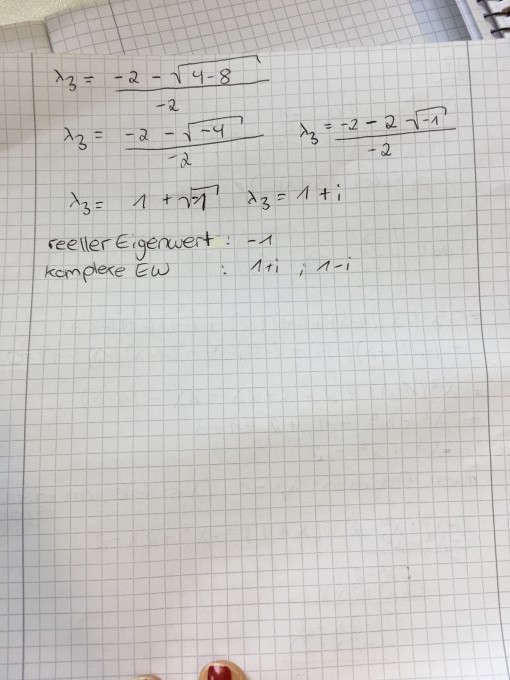 λ₃ = (-2 - √(4-8)) / -2
λ₃ = (-2 - √(-4)) / -2    λ₃ = (-2 - 2√(-1)) / -2
λ₃ = 1 + √-1    λ₃ = 1 + i
reeller Eigenwert : -1
komplexe EW : 1+i ; 1-i